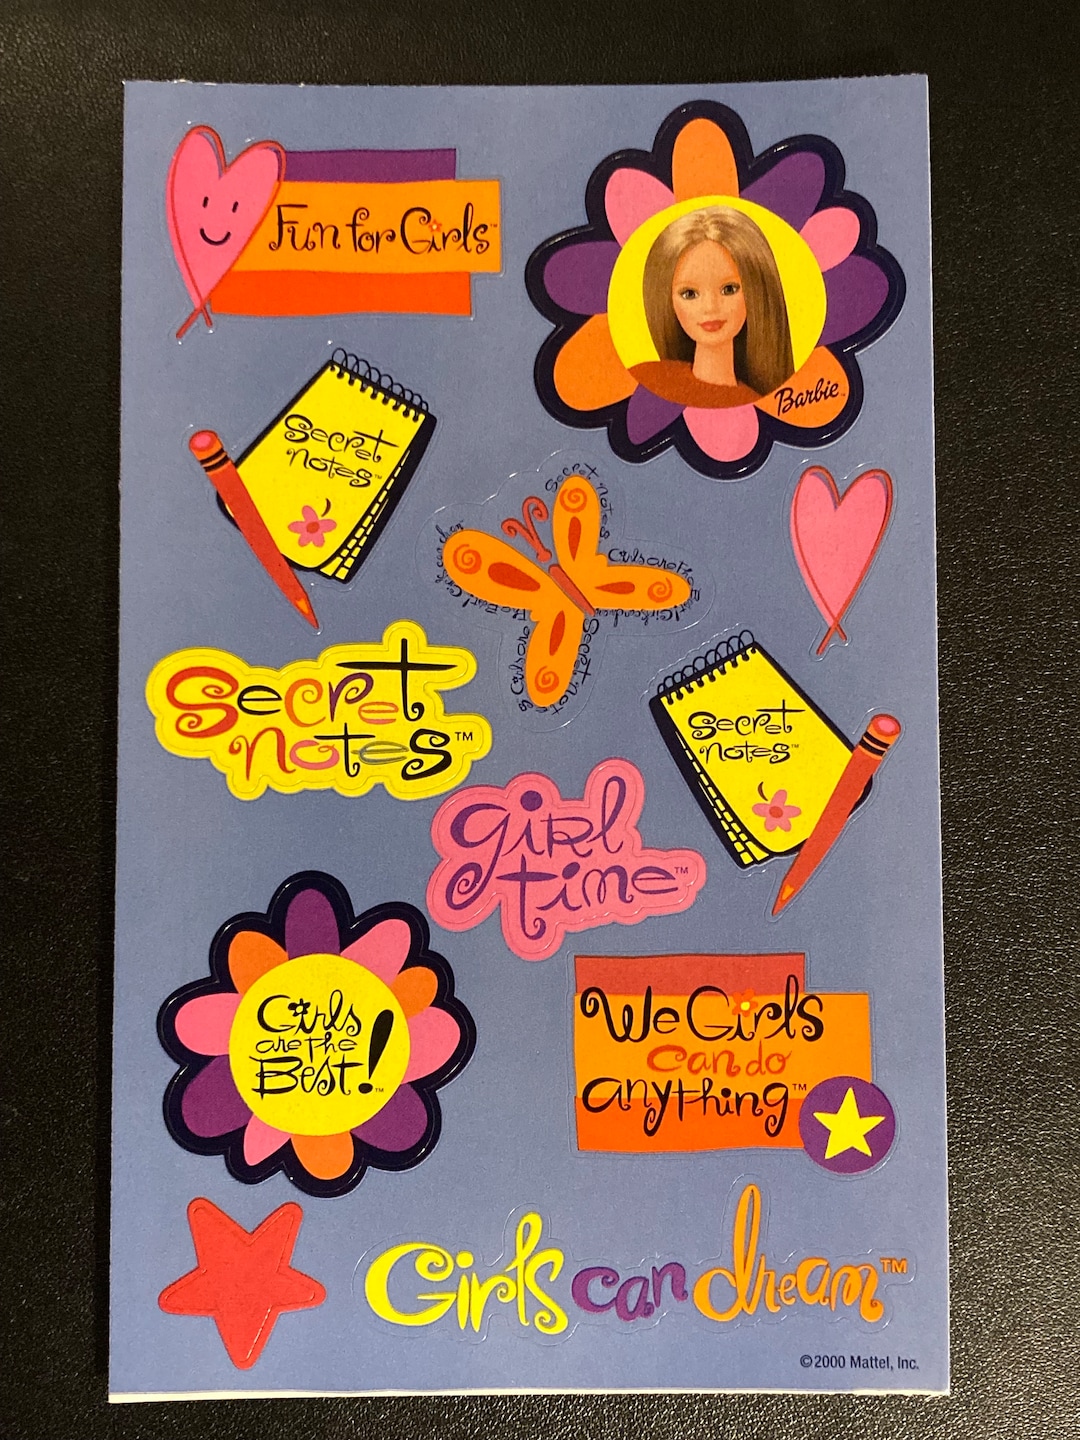 Fun for Girls™
Barbie™
Secret
notes™
Secret notes
Girls can dream
Girls are the Best!
Secret
notes™
Secret
notes™
girl
time™
Girls
are the
Best!™
We Girls
can do
anything™
Girls can dream™
©2000 Mattel, Inc.